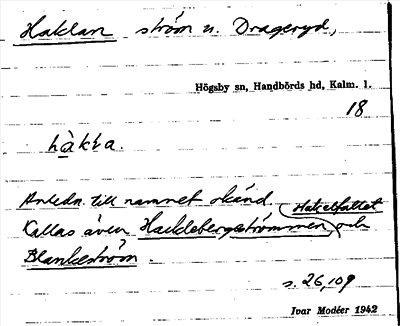 Haklan ström n. Drageryd,
Högsby sn, Handbörds hd, Kalm. l.
18
hàkła.
Anledn. till namnet okänd.
Hakelfallet
Kallas även Hacklebergströmmen, och
Blankeström.
s. 26, 109
Ivar Modéer 1942